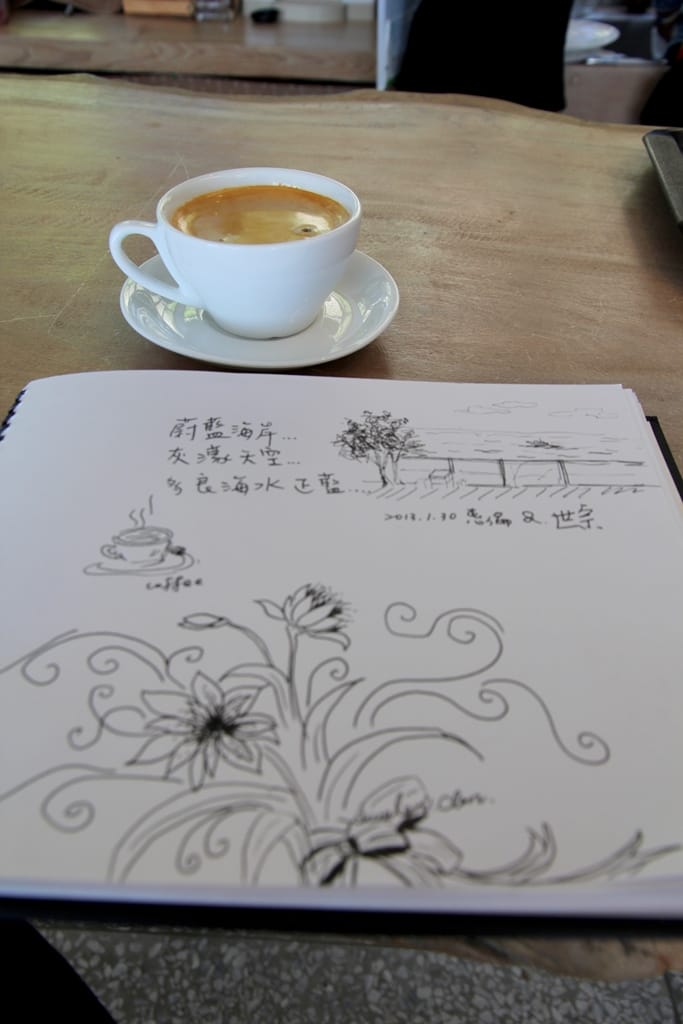 蔚藍海岸...
灰濛天空...
多良海水正藍...
2013.1.30 惠 & 世宗
coffee